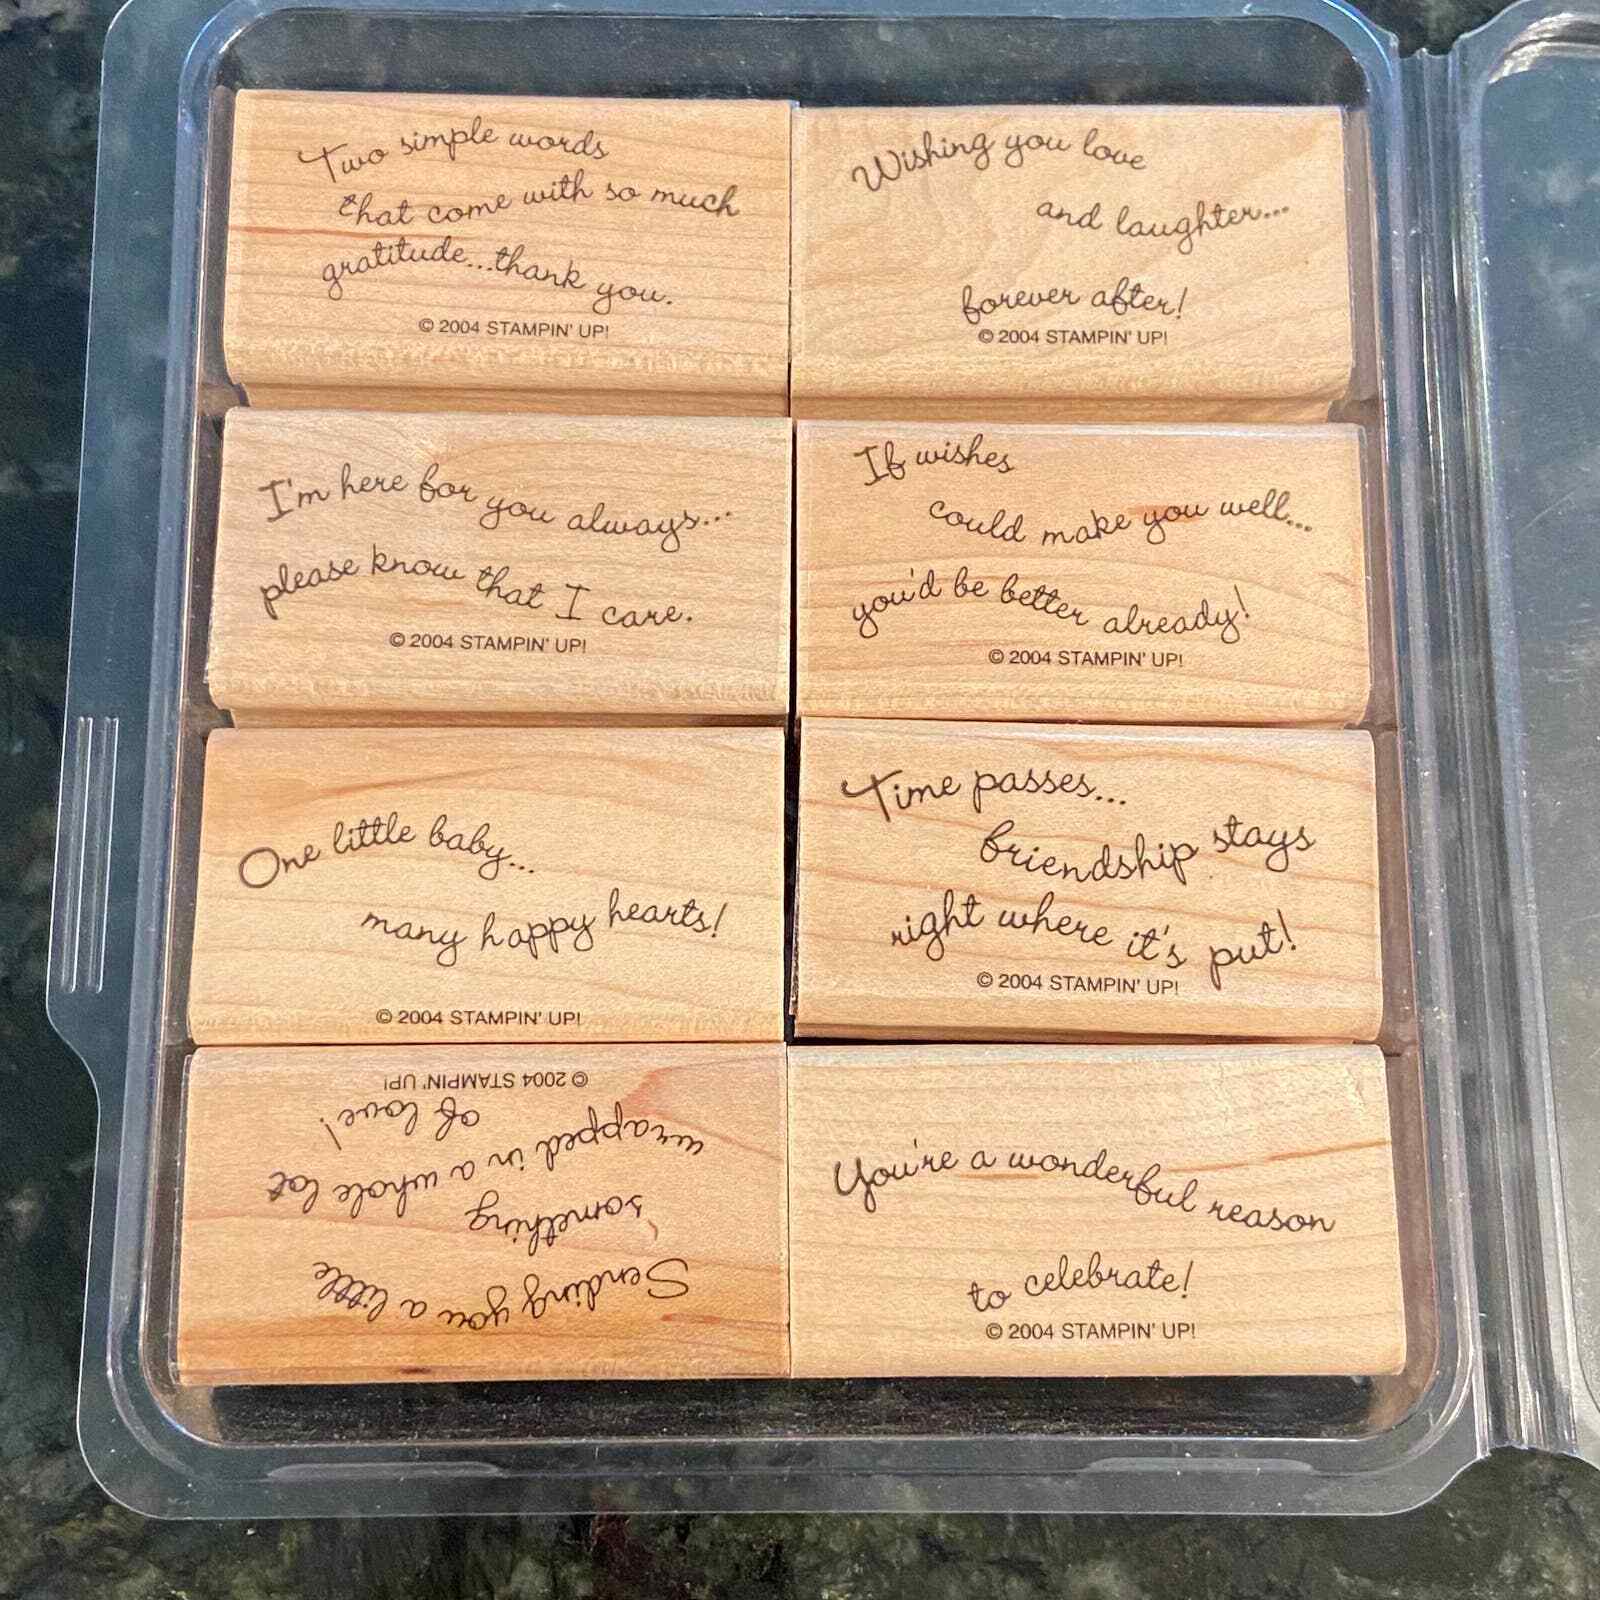 Two simple words
that come with so much
gratitude...thank you.
© 2004 STAMPIN' UP!
Wishing you love
and laughter...
forever after!
© 2004 STAMPIN' UP!
I'm here for you always...
please know that I care.
© 2004 STAMPIN' UP!
If wishes
could make you well...
you'd be better already!
© 2004 STAMPIN' UP!
One little baby...
many happy hearts!
© 2004 STAMPIN' UP!
Time passes...
friendship stays
right where it's put!
© 2004 STAMPIN' UP!
Sending you a little
something
wrapped in a whole lot
of love!
© 2004 STAMPIN' UP!
You're a wonderful reason
to celebrate!
© 2004 STAMPIN' UP!